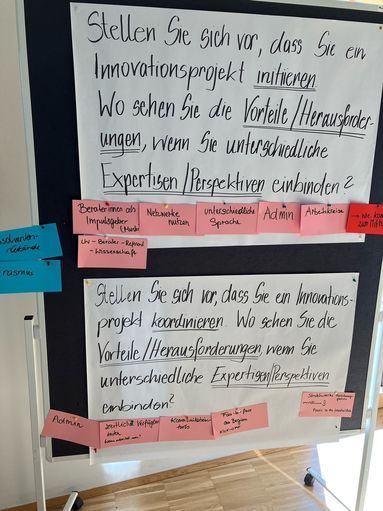 Stellen Sie sich vor, dass Sie ein
Innovationsprojekt initiieren.
Wo sehen Sie die Vorteile/Herausforder-
ungen, wenn Sie unterschiedliche
Expertisen/Perspektiven einbinden?
Berater:innen als
Impulsgeber
Netzwerke
nutzen
unterschiedliche
Sprache
Admin
Arbeitskreise
Uni-Berater-Referent
-Wissenschaft
Stellen Sie sich vor, dass Sie ein Innovations-
projekt koordinieren. Wo sehen Sie die
Vorteile/Herausforderungen, wenn Sie
unterschiedliche Expertisen/Perspektiven
einbinden?
Admin
zeitliche Verfügbar-
Face-to-face
zu Beginn